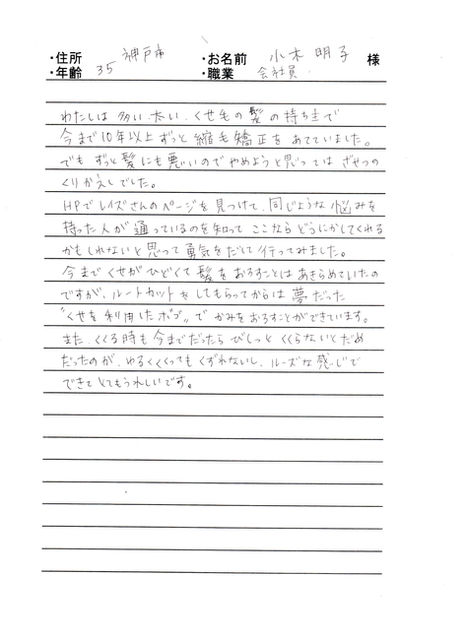 ・住所 神戸市 ・お名前 小木 明子 様
・年齢 35 ・職業 会社員
わたしは 多い、太い、くせ毛の 髪 の 持ち主で
今まで10年以上ずっと 縮毛矯正を あてていました。
でも ずっと髪にも悪いのでやめようと思っては ざせつの
くりかえしでした。
HPでレイズさんのページを見つけて、同じような悩みを
持った人が 通っているのを知って ここなら どうにかしてくれる
かもしれないと思って勇気をだして行ってみました。
今まで くせがひどくて髪をおろすことはあきらめていたの
ですが、ルートカットをしてもらってからは 夢だった
“くせを利用したボブ”で かみをおろすことができています。
また、くくる時も今までだったら びしっと くくらないとだめ
だったのが、ゆるくくくってもくずれないし、ルーズな感じで
できて とてもうれしいです。